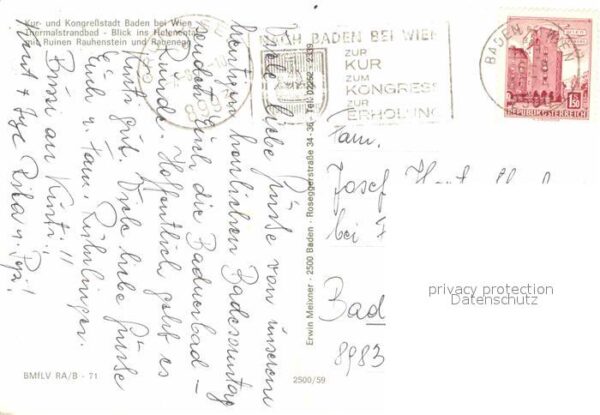 Kur- und Kongreßstadt Baden bei Wien
Thermalstrandbad - Blick ins Helenental
mit Ruinen Rauhenstein und Rauheneck
Viele liebe Grüße von unserem
herrlichen Badesonntag
sendet Euch die Badnerbad-
Runde. Hoffentlich geht es
Kurti gut. Viele liebe Grüße
Euch u. Fam.
Bussi an Kurti!!
Kurt + Inge Rita u. Pepi!
BMfLV RA/B - 71
2500/59
Erwin Meixner - 2500 Baden - Roseggerstraße 34-36 - Tel. 02252 - 2339
NACH BADEN BEI WIEN
ZUR
KUR
ZUM
KONGRESS
ZUR
ERHOLUNG
BADEN B. WIEN
1.50
REPUBLIK ÖSTERREICH
Fam.
Josef
bei
Bad
8983
privacy protection
Datenschutz